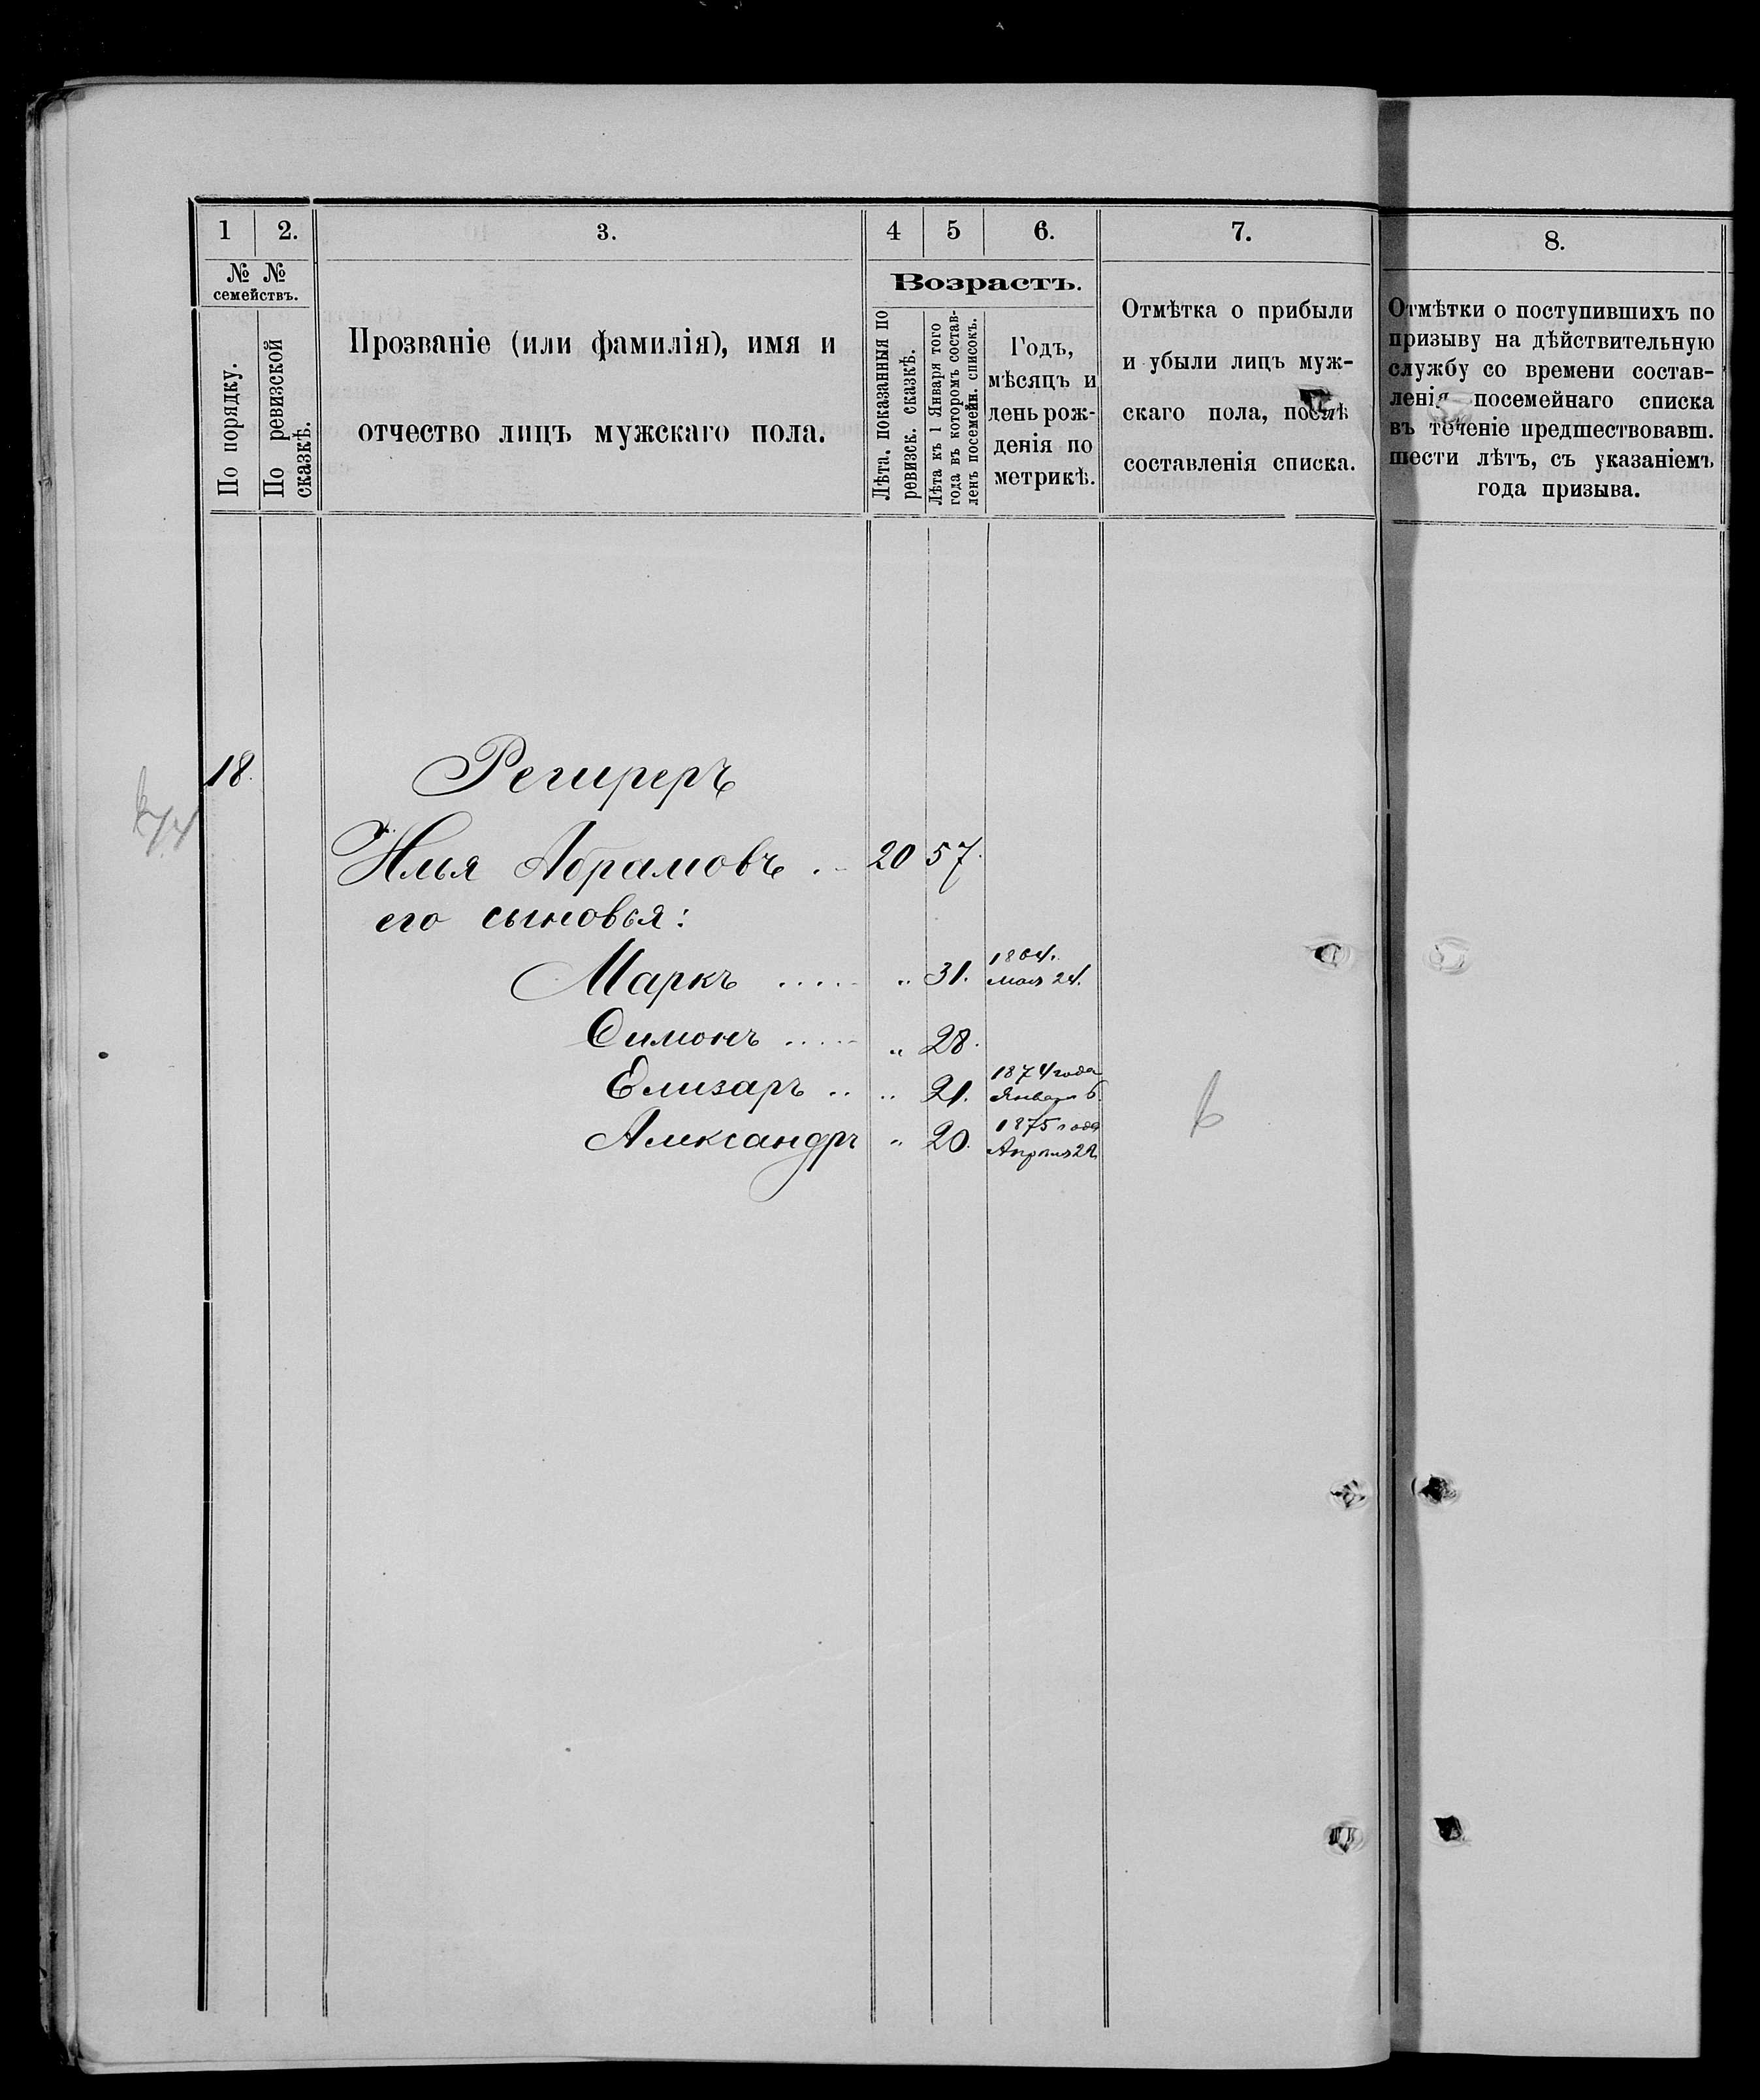 1 2. 3. 4 5 6. 7. 8.
№ № семействъ.
По порядку.
По ревизской сказкѣ.
Прозваніе (или фамилія), имя и
отчество лицъ мужскаго пола.
Возрастъ.
Лѣта, показанныя по
ревизск. сказкѣ.
Лѣта къ 1 Января того
года въ которомъ состав-
ленъ посемейн. списокъ.
Годъ,
мѣсяцъ и
день рож-
денія по
метрикѣ.
Отмѣтка о прибыли
и убыли лицъ муж-
скаго пола, послѣ
составленія списка.
Отмѣтки о поступившихъ по
призыву на дѣйствительную
службу со времени состав-
ленія посемейнаго списка
въ теченіе предшествовавш.
шести лѣтъ, съ указаніемъ
года призыва.
18. Региреръ
Илья Абрамовъ . 20 57.
его сыновья:
Маркъ ..... " 31. 1864. мая 24.
Симонъ ..... " 28.
Елизаръ .. " 21. 1874 года Января 6.
Александръ " 20. 1875 года Апрѣля 22